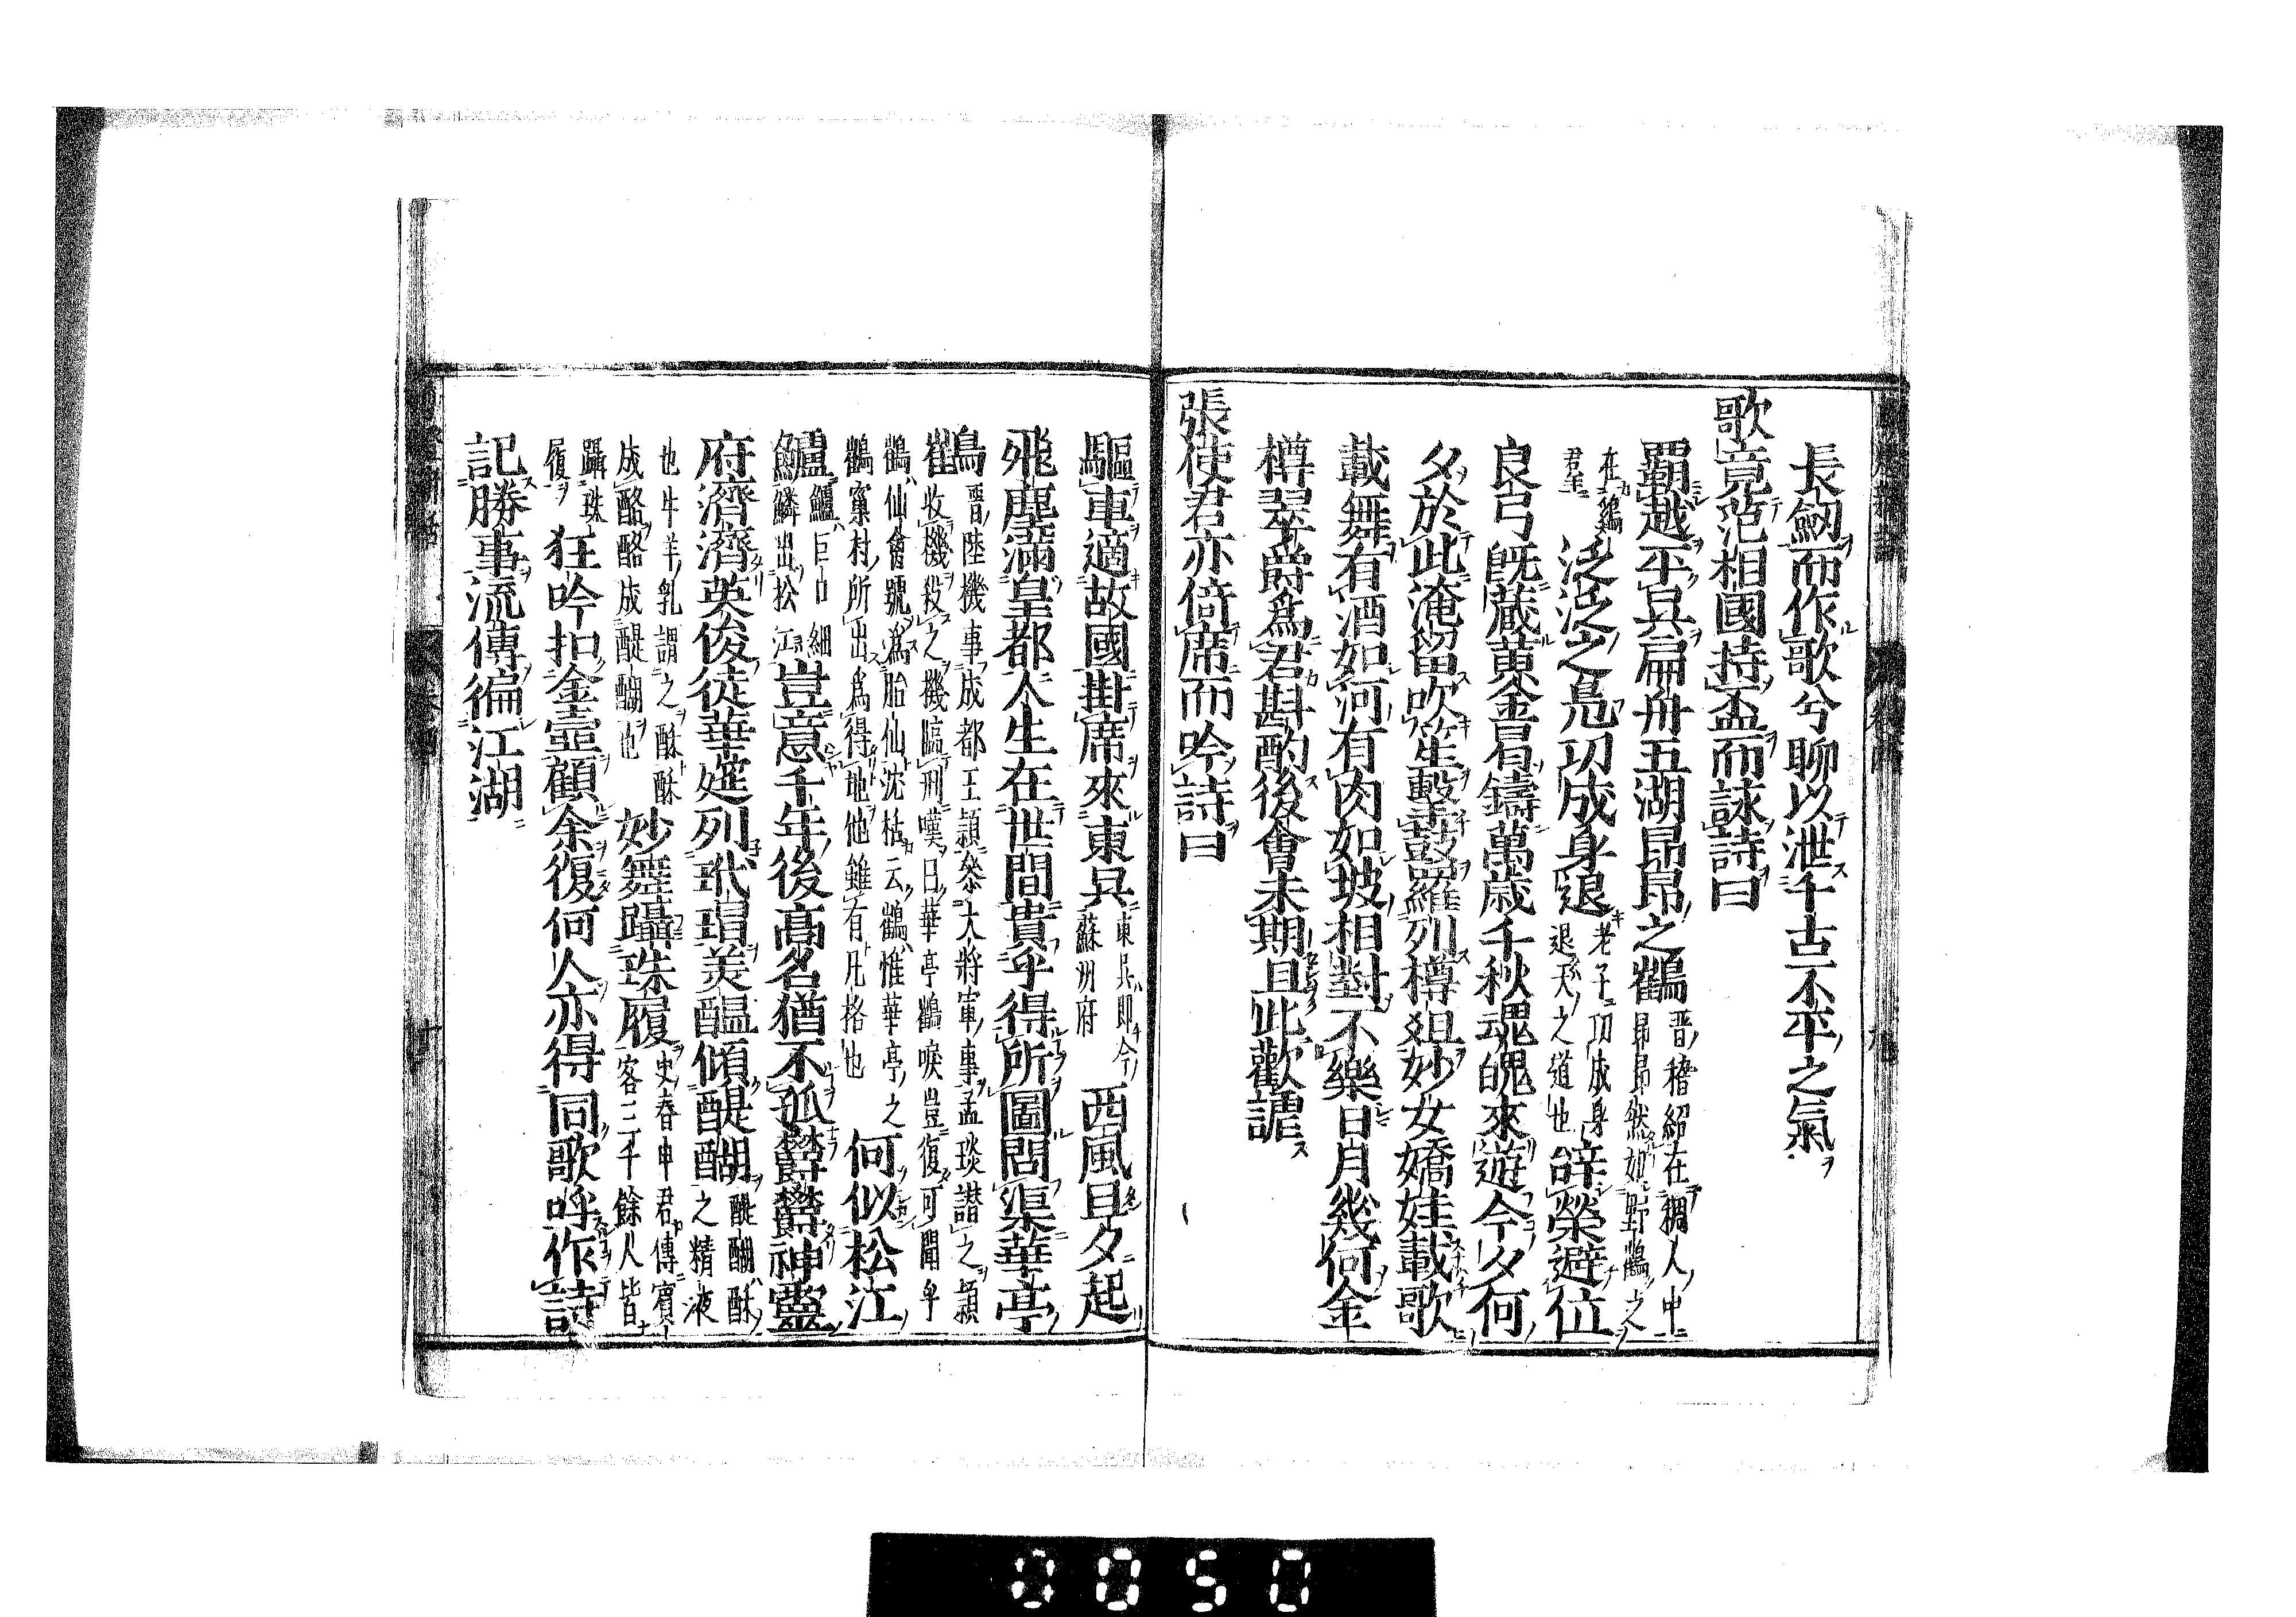 長劒而作歌兮聊以泄千古不平之氣
歌竟范相國持盃而詠詩曰
霸越平吳扁舟五湖昂昂之鶴晋嵆紹在稠人中昂昂然如野鶴之
在雞羣泛泛之鳧功成身退老子功成身退天之道也辭榮避位
良弓既蔵黄金曷鑄萬歳千秋魂魄來遊今夕何
夕於此淹留吹笙擊鼓羅列樽俎妙女嬌娃載歌
載舞有酒如河有肉如坡相對不樂日月幾何金
樽翠爵爲君斟酌後會未期且此歡謔
張使君亦倚席而吟詩曰
驅車適故國掛席來東吳東吳即今蘇洲府西風旦夕起
飛塵滿皇都人生在世間貴乎得所圖問渠華亭
鶴晋陸機事成都王頴叅大將軍事孟玖譖之頴収機殺之機臨刑嘆曰華亭鶴唳豈復可聞乎
鶴仙禽號爲胎仙沈枯云鶴惟華亭之鶴窠村所出爲得地他雖有凡格也何似松江
鱸鱸巨口細鱗出松江豈意千年後高名猶不孤欝欝神靈
府濟濟英俊徒華筵列玳瑁美醖傾醍醐醍醐酥酪之精液
也牛羊乳謂之酥酥成酪酪成醍醐也妙舞躡珠履史春申君傳賓客三千餘人皆
躡珠履狂吟扣金壼顧余復何人亦得同歌呼作詩
記勝事流傳徧江湖
0050